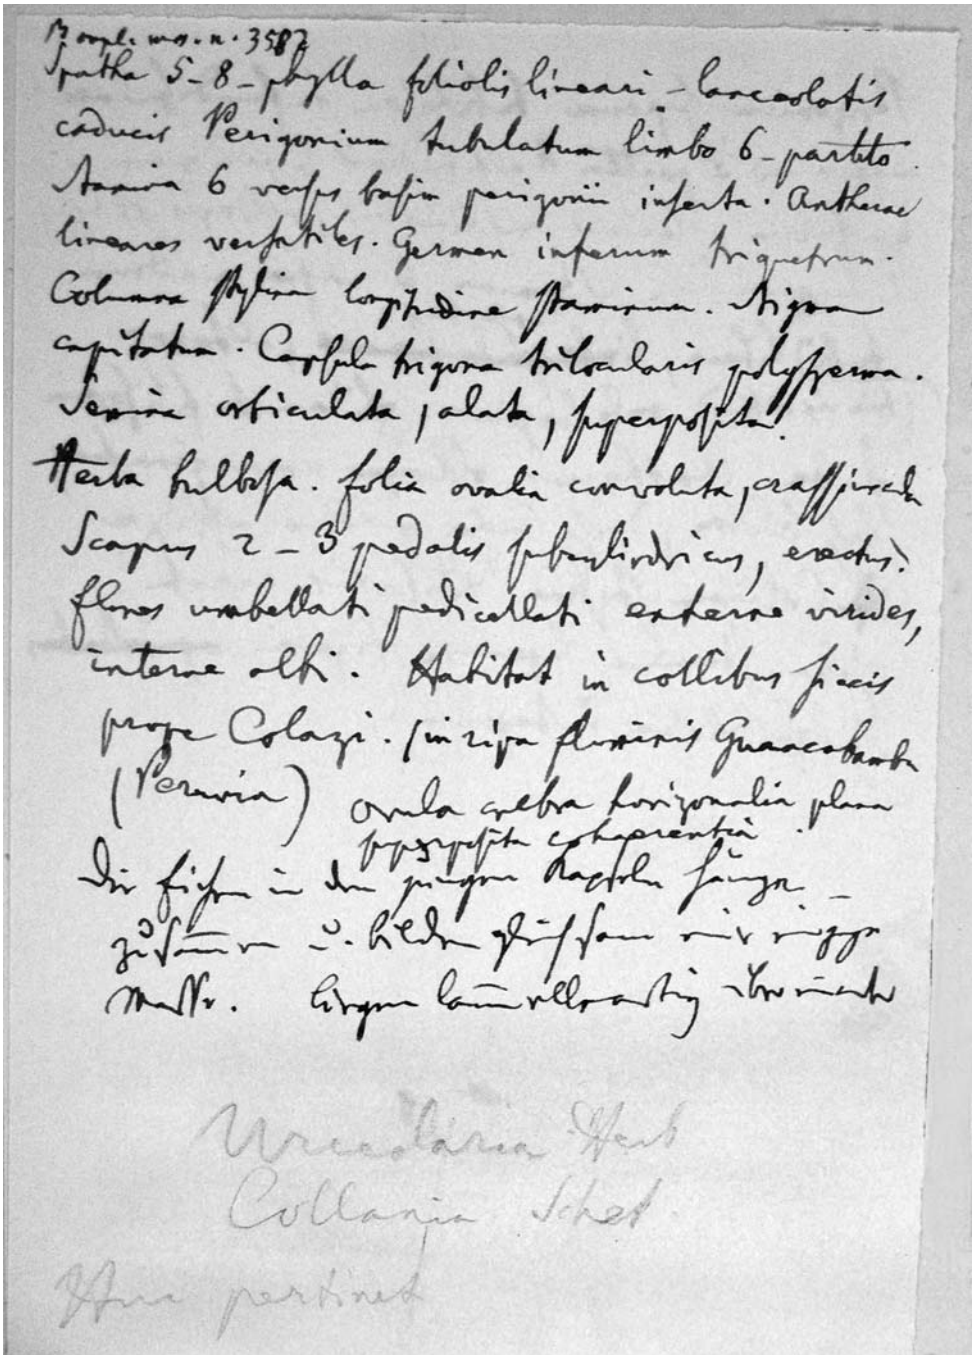 Bonpl. mss. n. 3587
Spatha 5-8-phylla foliolis lineari-lanceolatis
caducis Perigonium tubulatum limbo 6-partito.
Stamina 6 versus basim perigonii inserta. Antherae
lineares versatiles. Germen inferum triquetrum.
Columna stylina longitudine staminum. Stigma
capitatum. Capsula trigona trilocularis polysperma.
Semina orbiculata, alata, superposita.
Herba bulbosa. folia ovalia convoluta,
Scapus 2-3 pedalis subcylindricus, erectus.
flores umbellati pedicellati externe virides,
interne albi. Habitat in collibus siccis
prope Colazi. in ripa fluminis Guancabamba
(Peruvia) ovula crebra horizonalia plana
superposita cohaerentia.
Die in den jungen Kapseln hängen
zusammen u. bilden gleichsam eine einzige
Masse. liegen lamellenartig übereinander
Urceolaria Herb
Collania Schet
Huc pertinet